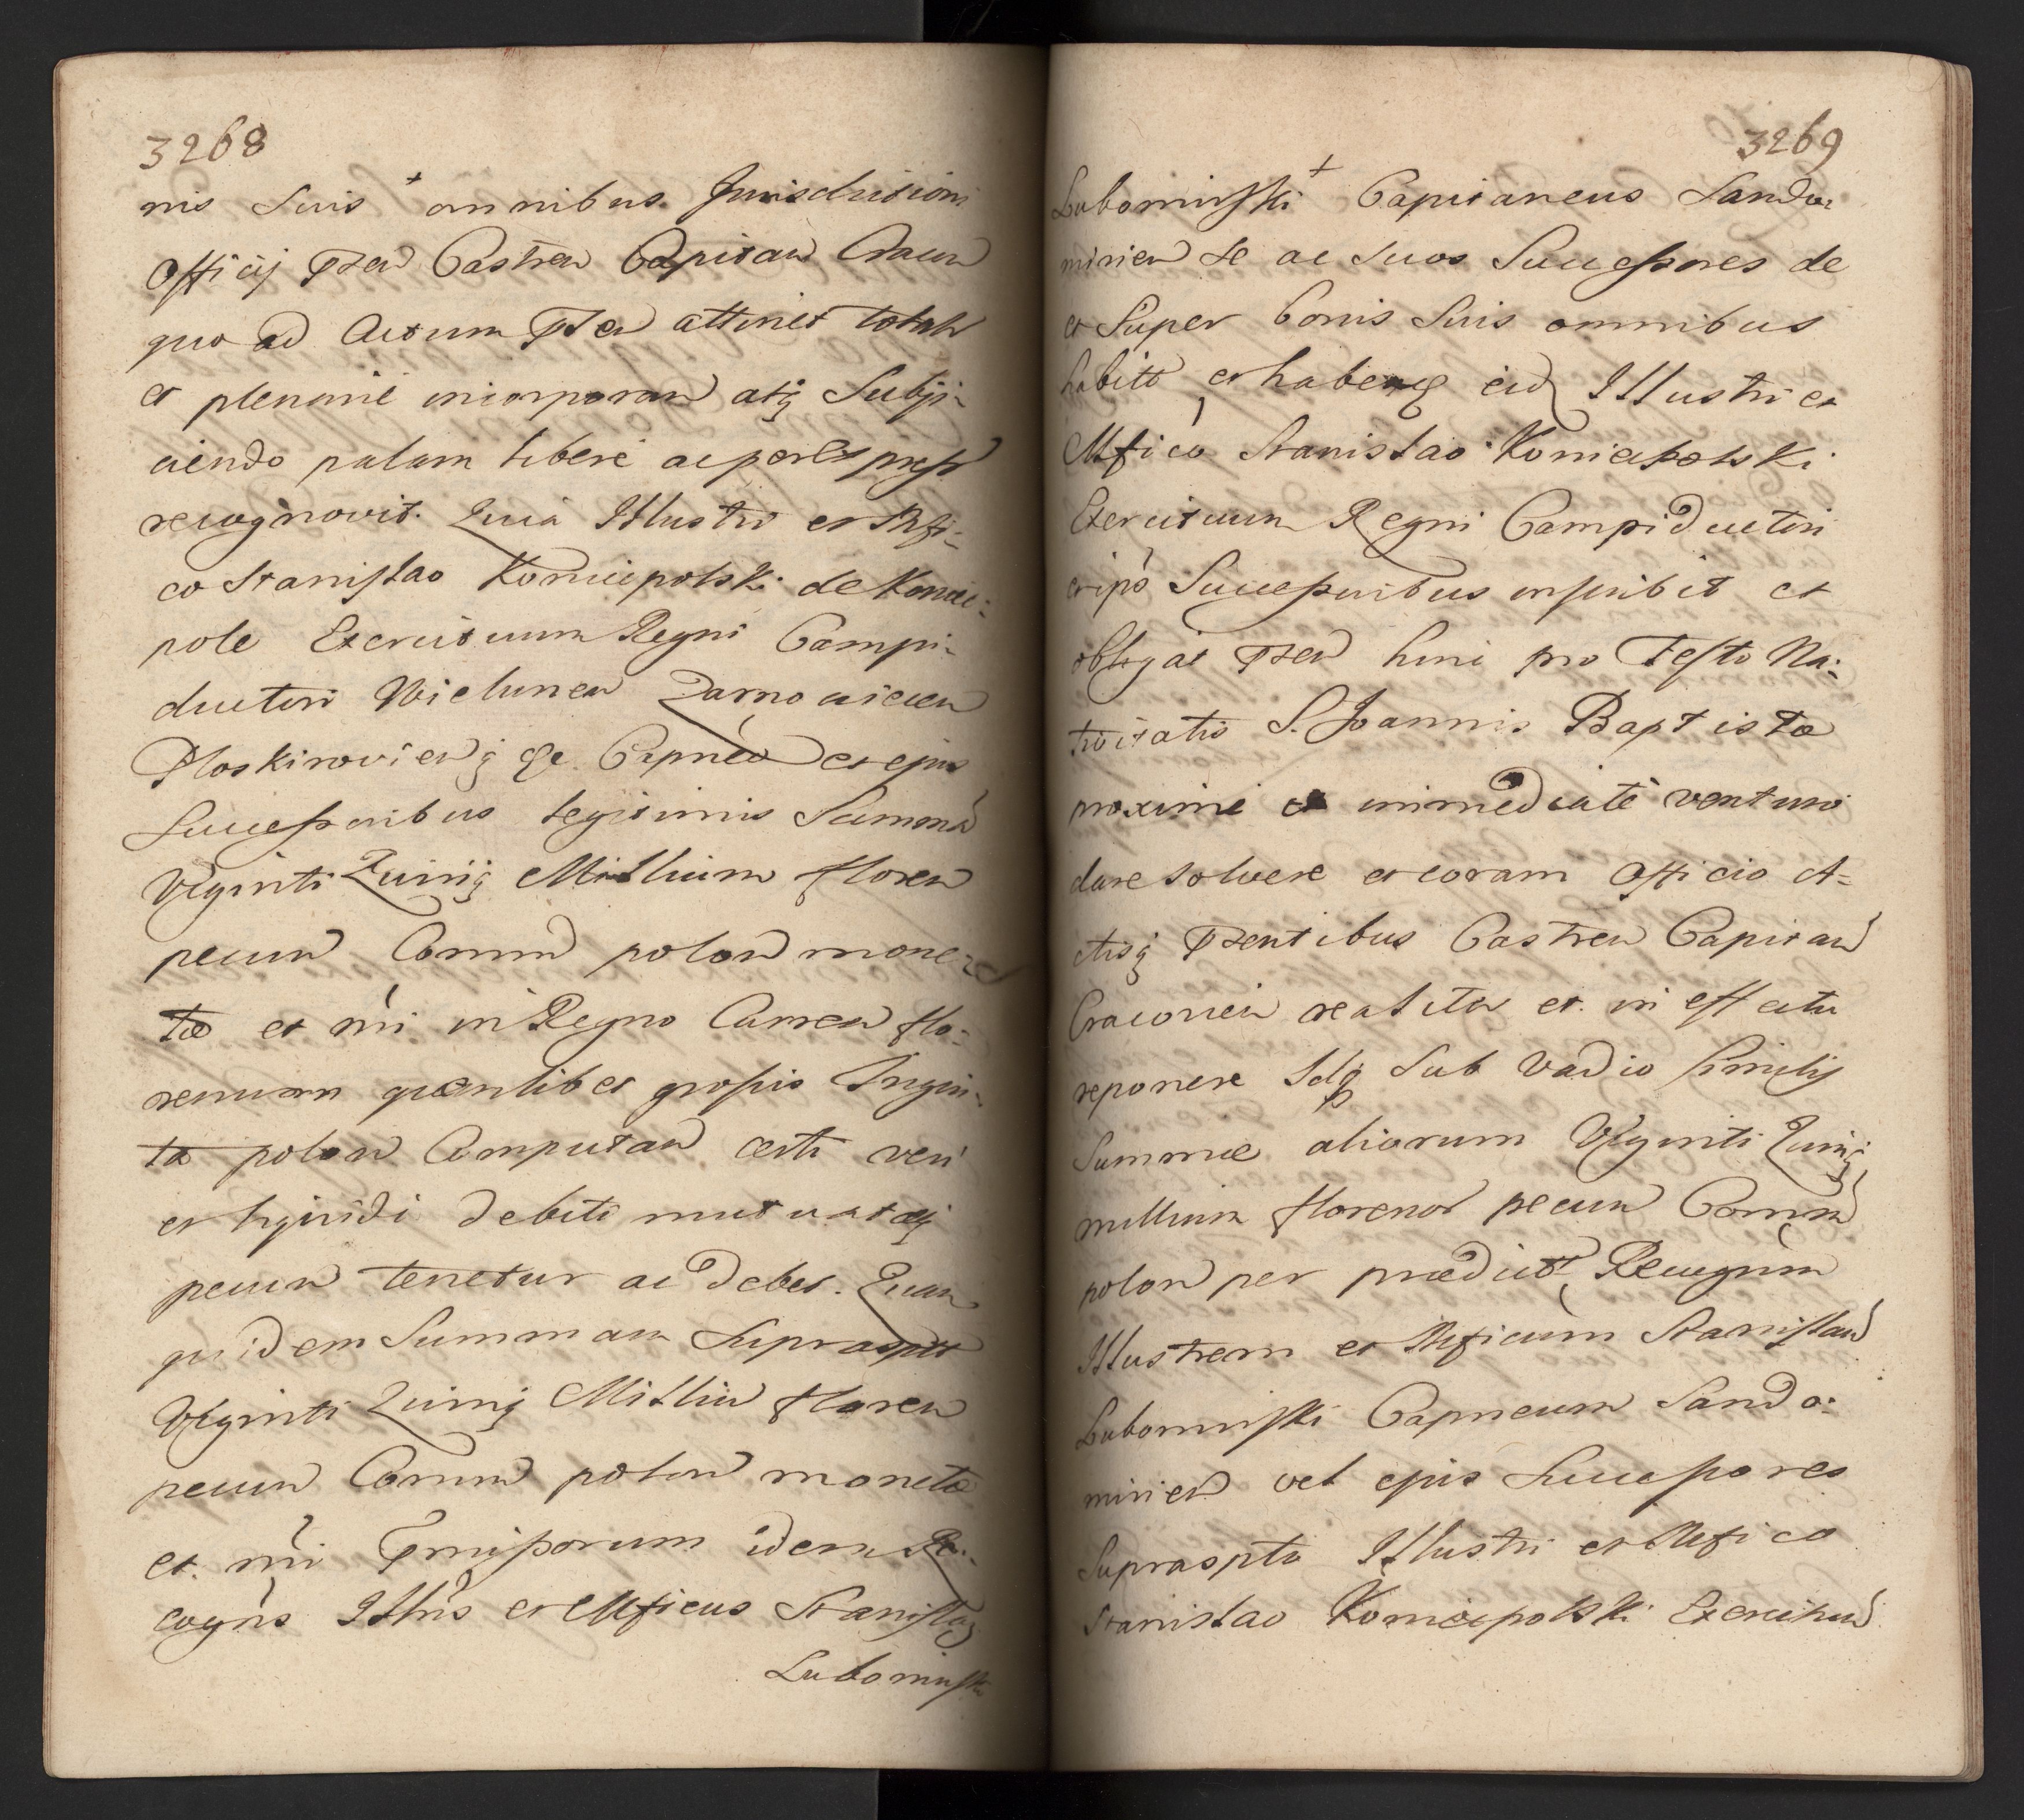 3268
nis Suis + omnibus Jurisdictioni
Officij Pñen Castren Capitan Cracon
quo ad Actum Pñen attinet total
et plenarie incorporan atq Subji-
ciendo palam libere ac per express
recognovit. Quia Illustri et Mfi-
co Stanislao Koniecpolski de Koniec-
pole Exercituum Regni Campi-
ductori Wielunen Zarnovicen
Ploskirovienq &c. Capneo et ejus
Successoribus legitimis Summa
Viginti Quinq Millium floren
pecun Comun polon mone-
tæ et nri in Regno Curren flo-
renum quemlibet grossis Trigin-
ta polon Computan certi veri
et liquidi debiti mutuatæq
pecun tenetur ac debet. Quam
quidem Summam Suprasptt
Viginti Quinq Milliu floren
pecun Comun polon moneta
et nri Pmissorum idem Re-
cogns Illris et Mficus Stanislaq
Lubomirski
3269
Lubomirski + Capitaneus Sando-
mirien se ac Suos Successores de
et Super bonis Suis omnibus
habitt et haben eid Illustri et
Mfico Stanislao Koniecpolski
Exercituum Regni Campiductori
et ips Successoribus inscribit et
obligat Pñen hinc pro Festo Na-
tivitatis S. Joannis Baptistæ
proxime et immediate venturo
dare solvere et coram Officio A-
ctisq Pñentibus Castren Capitan
Cracovien realiter et in effectu
reponere Idq Sub Vadio Similis
Summæ aliorum Viginti Quinq
millium florenor pecun Comun
polon per prædictt Recogn
Illustrem et Mficum Stanislau
Lubomirski Capneum Sando-
mirien vel ejus Successores
Supraspto Illustri et Mfico
Stanislao Koniecpolski Exercituu